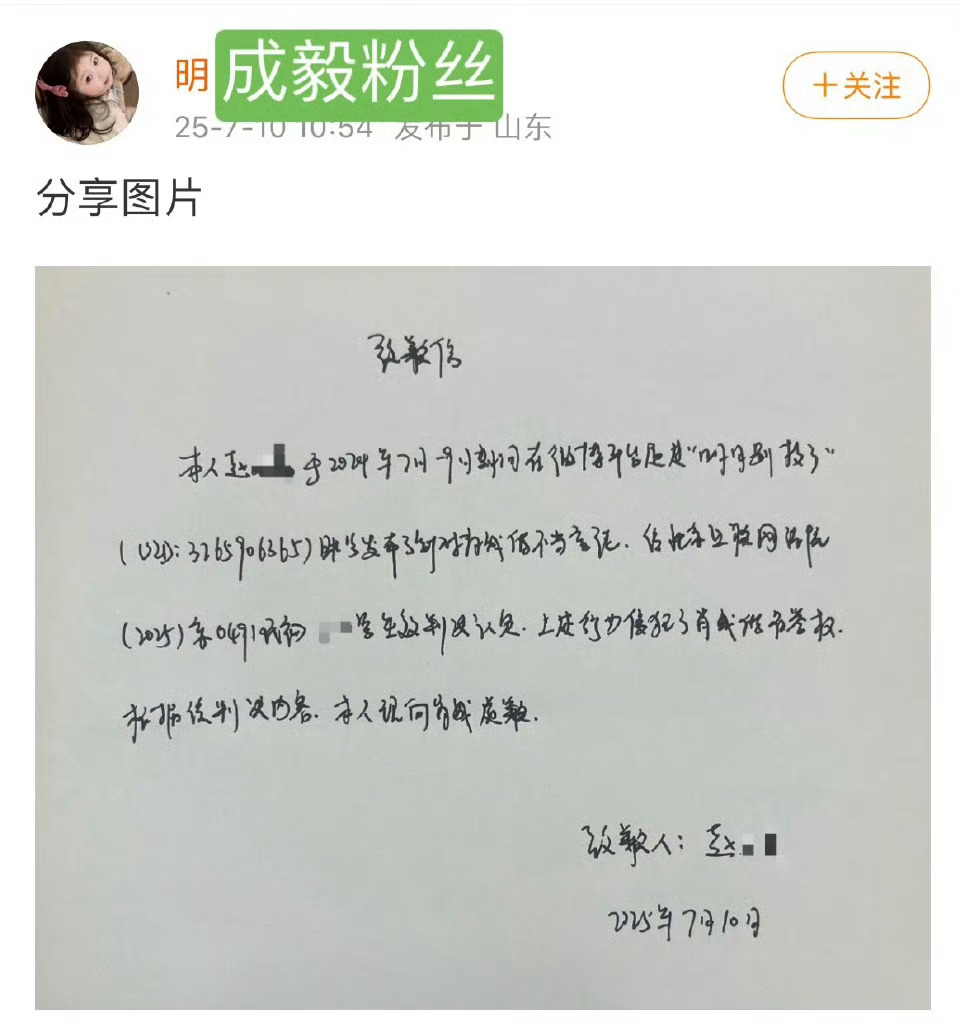 明
成毅粉丝
25-7-10 10:54 发布于 山东
+关注
分享图片
致歉信
本人赵 于2024年7月-9月期间在微博平台通过"明月别救了"
(UID:3265906365)账号发布了针对肖战的不当言论.经北京互联网法院
(2025)京0491民初 号生效判决认定.上述行为侵犯了肖战的名誉权.
根据该判决内容.本人现向肖战致歉.
致歉人:赵
2025年7月10日